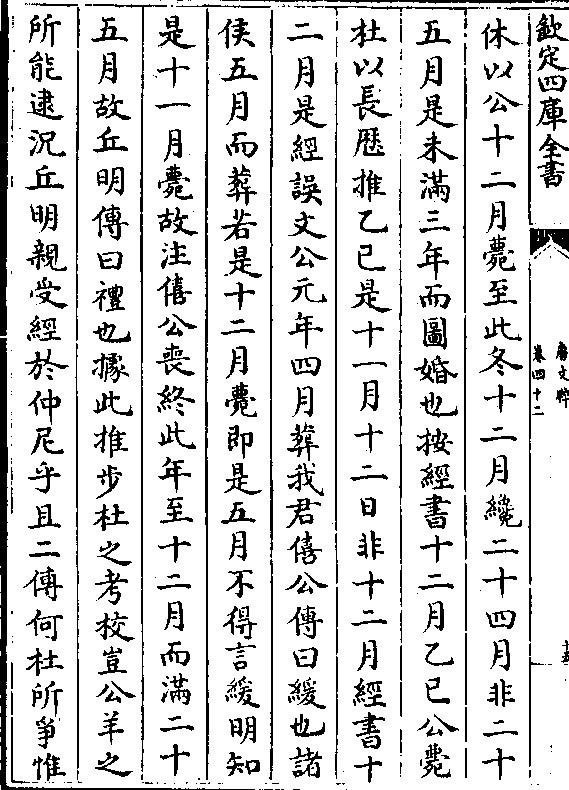 欽定四庫全書
唐文粹
卷四十二
休以公十二月薨至此冬十二月纔二十四月非二十
五月是未滿三年而圖婚也按經書十二月乙巳公薨
杜以長歷推乙巳是十一月十二日非十二月經書十
二月是經誤文公元年四月葬我君僖公傳曰緩也諸
侯五月而葬若是十二月薨即是五月不得言緩明知
是十一月薨故注僖公喪終此年至十二月而滿二十
五月故丘明傳曰禮也據此推步杜之考校豈公羊之
所能逮況丘明親受經於仲尼乎且二傳何杜所爭惟